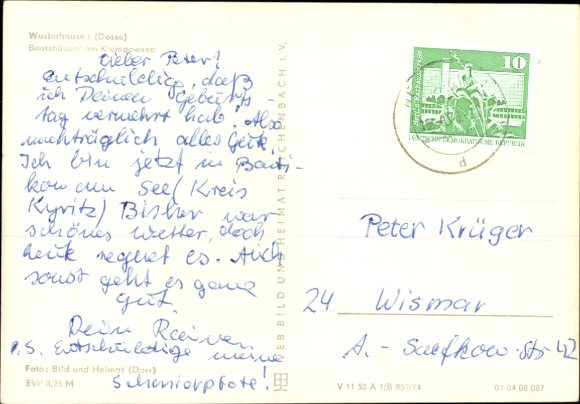 Wusterhausen (Dosse)
Bootshäuser am Klempowsee
Lieber Peter!
Entschuldig, daß
ich Deinen Geburts-
tag vermehrt hab. Also
nachträglich alles Gute.
Ich bin jetzt in Banti-
kow am See (Kreis
Kyritz) Bisher war
schönes Wetter, doch
heute regnet es. Auch
sonst geht es ganz
gut.
Dein Rainer
P.S. Entschuldige meine
Schmierpfote!
Foto: Bild und Heimat (Darr)
EVP 0,25 M
VEB BILD UND HEIMAT REICHENBACH i. V.
10
DEUTSCHE DEMOKRATISCHE REPUBLIK
Peter Krüger
24 Wismar
A.-Saefkow-Str 42
V 11 50 A 1/B 852/74
01 04 08 087